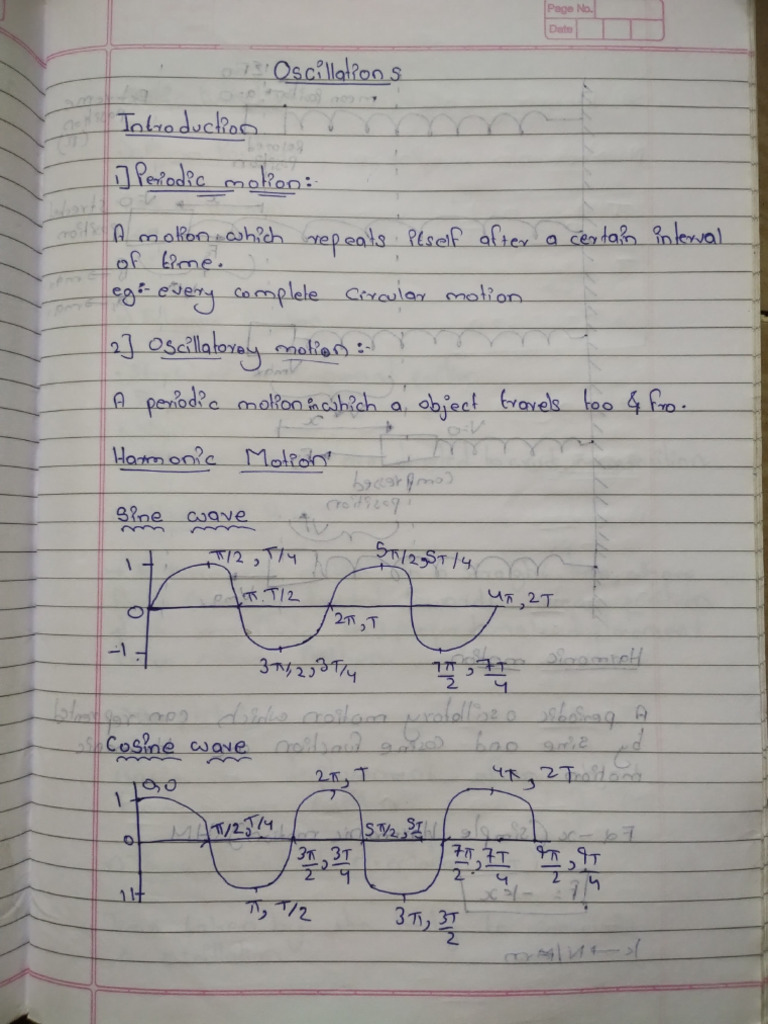 Page No.
Date
Oscillations
Introduction
1] Periodic motion:-
A motion which repeats itself after a certain interval
of time.
eg:- every complete circular motion
2] Oscillatorey motion:-
A periodic motion in which a object travels too & fro.
Harmonic Motion
Sine wave
1 π/2, T/4 5π/2, 5T/4
0 π T/2 2π, T 4π, 2T
-1 3π/2, 3T/4 7π/2, 7T/4
Cosine wave
1 0,0 2π, T 4π, 2T
0 π/2, T/4 3π/2, 3T/4 5π/2, 5T/4 7π/2, 7T/4 9π/2, 9T/4
π, T/2 3π, 3T/2